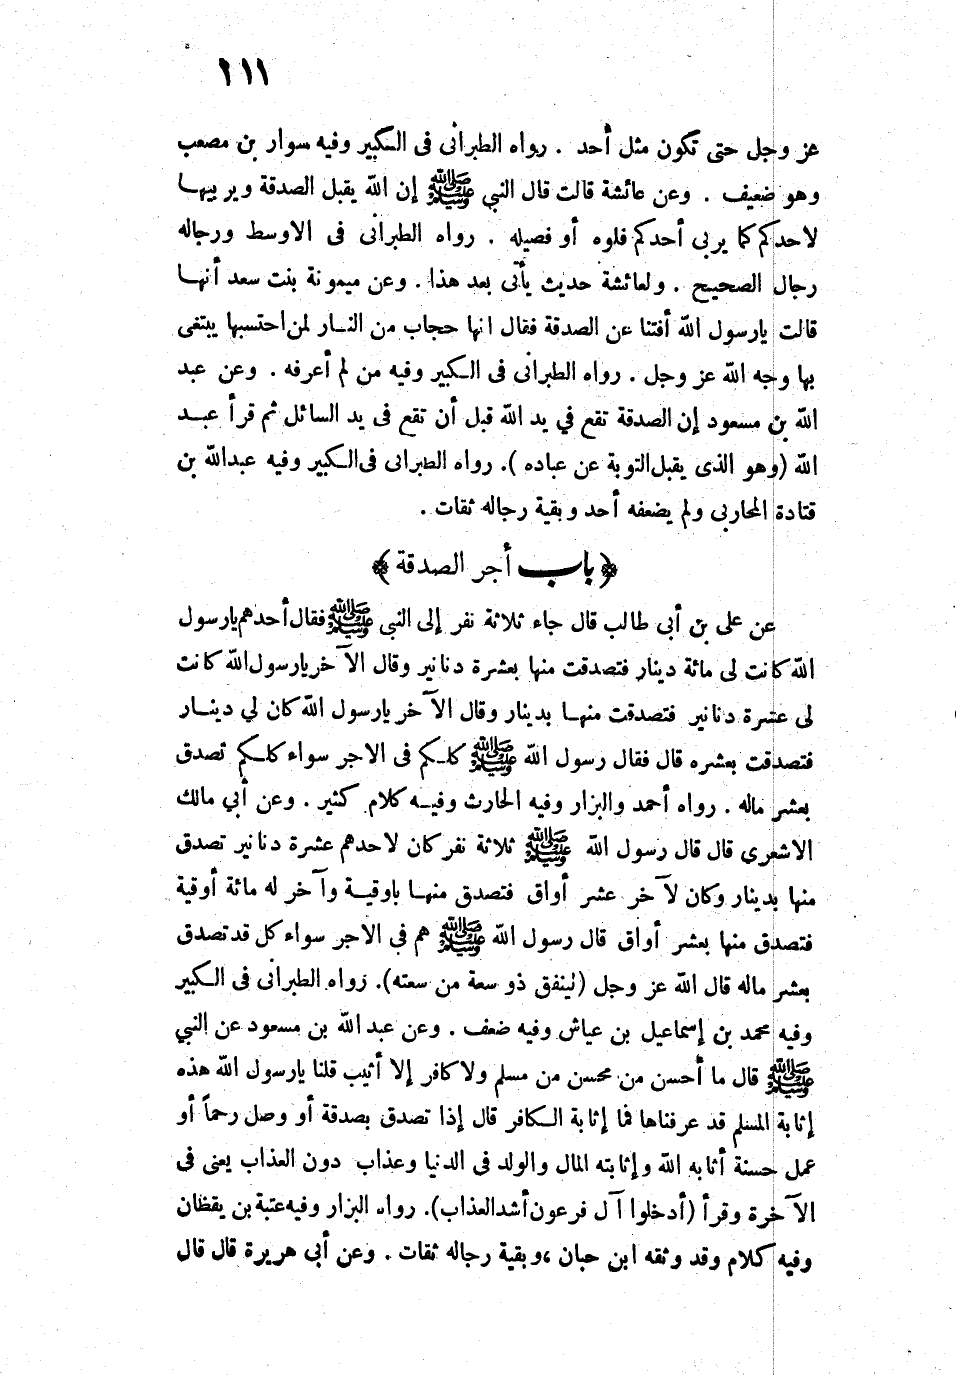 ٢١١
عز وجل حتى تكون مثل أحد . رواه الطبرانى فى الكبير وفيه سوار بن مصعب
وهو ضعيف . وعن عائشة قالت قال النبي ﷺ إن الله يقبل الصدقة ويربيها
لاحدكم كما يربى أحدكم فلوه أو فصيله . رواه الطبرانى فى الاوسط ورجاله
رجال الصحيح . ولعائشة حديث يأتى بعد هذا . وعن ميمونة بنت سعد أنها
قالت يارسول الله أفتنا عن الصدقة فقال انها حجاب من النار لمن احتسبها يبتغى
بها وجه الله عز وجل . رواه الطبرانى فى الكبير وفيه من لم أعرفه . وعن عبد
الله بن مسعود إن الصدقة تقع في يد الله قبل أن تقع فى يد السائل ثم قرأ عبد
الله (وهو الذى يقبل التوبة عن عباده ). رواه الطبرانى فى الكبير وفيه عبدالله بن
قتادة المحاربى ولم يضعفه أحد وبقية رجاله ثقات .
﴿ باب أجر الصدقة ﴾
عن على بن أبى طالب قال جاء ثلاثة نفر إلى النبى ﷺ فقال أحدهم يارسول
الله كانت لى مائة دينار فتصدقت منها بعشرة دنانير وقال الآخر يارسول الله كانت
لى عشرة دنانير فتصدقت منها بدينار وقال الآخر يارسول الله كان لي دينار
فتصدقت بعشره قال فقال رسول الله ﷺ كلكم فى الاجر سواء كلكم تصدق
بعشر ماله . رواه أحمد والبزار وفيه الحارث وفيه كلام كثير . وعن أبي مالك
الاشعرى قال قال رسول الله ﷺ ثلاثة نفر كان لاحدهم عشرة دنانير تصدق
منها بدينار وكان لآخر عشر أواق فتصدق منها باوقية وآخر له مائة أوقية
فتصدق منها بعشر أواق قال رسول الله ﷺ هم فى الاجر سواء كل قد تصدق
بعشر ماله قال الله عز وجل (لينفق ذو سعة من سعته). رواه الطبرانى فى الكبير
وفيه محمد بن إسماعيل بن عياش وفيه ضعف . وعن عبد الله بن مسعود عن النبي
ﷺ قال ما أحسن من محسن من مسلم ولا كافر إلا أثيب قلنا يارسول الله هذه
إثابة المسلم قد عرفناها فما إثابة الكافر قال إذا تصدق بصدقة أو وصل رحماً أو
عمل حسنة أثابه الله وإثابته المال والولد فى الدنيا وعذاب دون العذاب يعنى فى
الآخرة وقرأ (أدخلوا آل فرعون أشد العذاب). رواه البزار وفيه عتبة بن يقظان
وفيه كلام وقد وثقه ابن حبان ، وبقية رجاله ثقات . وعن أبى هريرة قال قال